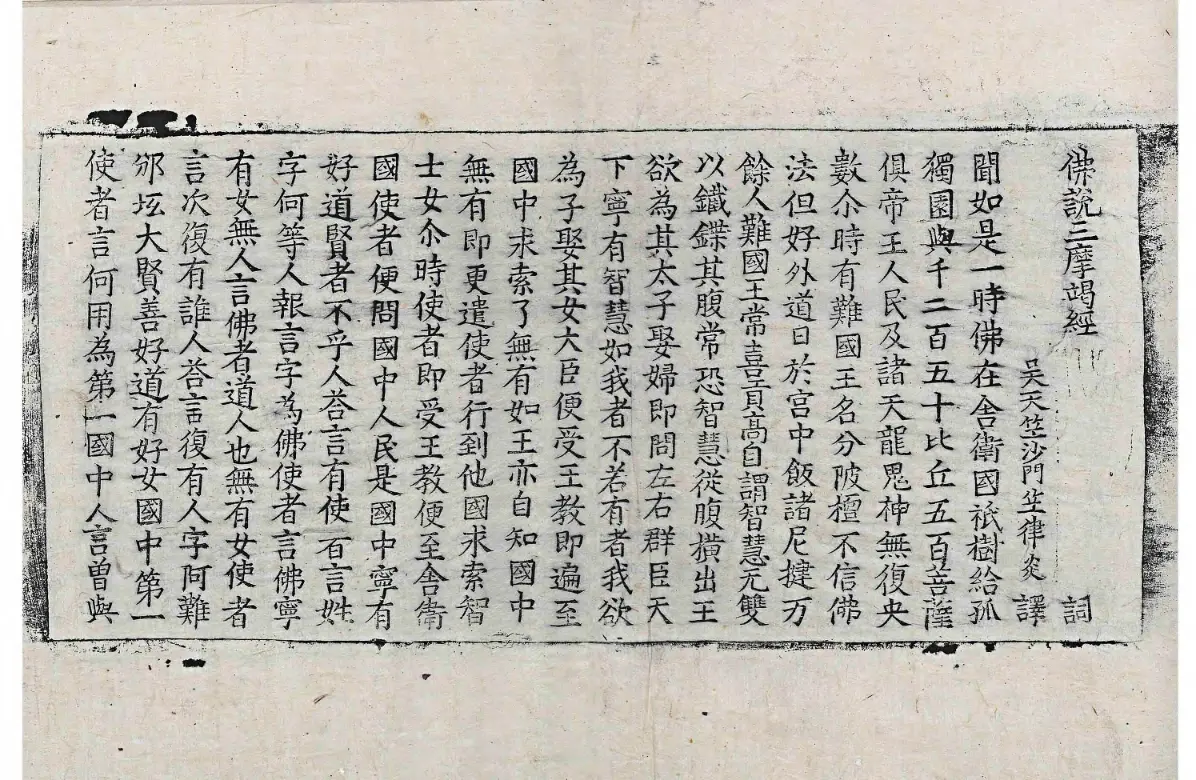 佛說三摩竭經 詞
吳天竺沙門竺律炎 譯
聞如是一時佛在舍衛國祇樹給孤
獨園與千二百五十比丘五百菩薩
俱帝王人民及諸天龍鬼神無復央
數尒時有難國王名分陂檀不信佛
法但好外道日於宮中飯諸尼揵万
餘人難國王常憙貢高自謂智慧无雙
以鐵鍱其腹常恐智慧從腹橫出王
欲為其太子娶婦即問左右群臣天
下寧有智慧如我者不若有者我欲
為子娶其女大臣便受王教即遍至
國中求索了無有如王亦自知國中
無有即更遣使者行到他國求索智
士女尒時使者即受王教便至舍衛
國使者便問國中人民是國中寧有
好道賢者不乎人荅言有使百言姓
字何等人報言字為佛使者言佛寧
有女無人言佛者道人也無有女使者
言次復有誰人荅言復有人字阿難
邠坻大賢善好道有好女國中第一
使者言何用為第一國中人言曾與